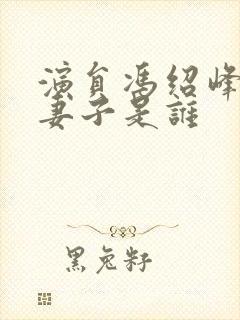 演員馮紹峰
妻子是誰
黑兔籽